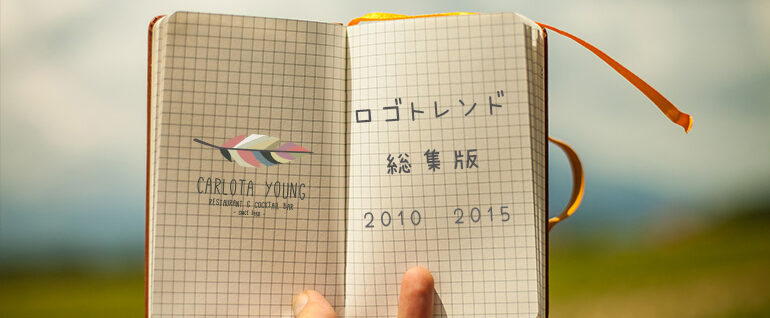 CARLOTA YOUNG
RESTAURANT & COCKTAIL BAR
ロゴトレンド
総集版
2010 2015